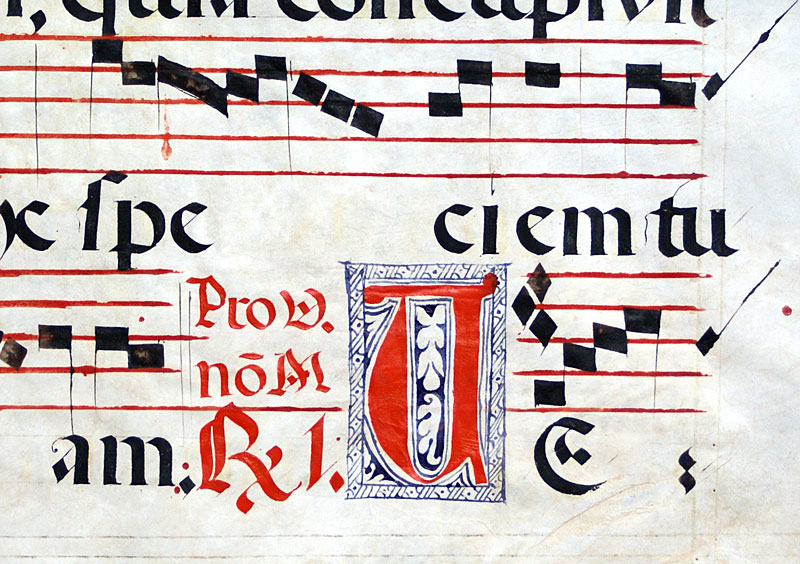 quam concupivit
x spe ciem tu
Pro V.
nō M
am. ℟ 1. V E :